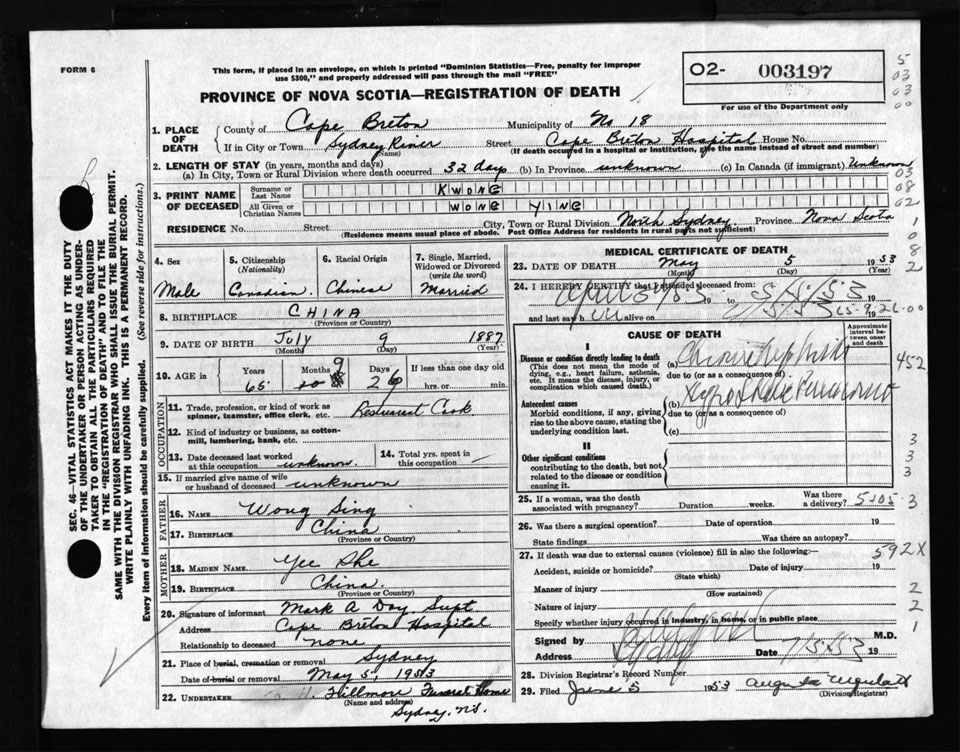 FORM 6
This form, if placed in an envelope, on which is printed "Dominion Statistics—Free, penalty for improper
use $300," and properly addressed will pass through the mail "FREE"
PROVINCE OF NOVA SCOTIA—REGISTRATION OF DEATH
O2- 003197
For use of the Department only
1. PLACE OF DEATH County of Cape Breton Municipality of No 18
If in City or Town Sydney River (Name) Street Cape Breton Hospital House No.
(If death occurred in a hospital or institution, give the name instead of street and number)
2. LENGTH OF STAY (in years, months and days)
(a) In City, Town or Rural Division where death occurred 32 days (b) In Province unknown (c) In Canada (if immigrant) Unknown
3. PRINT NAME OF DECEASED Surname or Last Name KWONG
All Given or Christian Names WONG YING
RESIDENCE No. Street City, Town or Rural Division North Sydney Province Nova Scotia
(Residence means usual place of abode. Post Office Address for residents in rural parts not sufficient)
4. Sex Male
5. Citizenship (Nationality) Canadian
6. Racial Origin Chinese
7. Single, Married, Widowed or Divorced (write the word) Married
8. BIRTHPLACE CHINA
(Province or Country)
9. DATE OF BIRTH July 9 1887
(Month) (Day) (Year)
10. AGE in Years 65 Months 9 Days 26 If less than one day hrs. or min.
OCCUPATION
11. Trade, profession, or kind of work as spinner, teamster, office clerk, etc. Restaurant Cook
12. Kind of industry or business, as cotton-mill, lumbering, bank, etc.
13. Date deceased last worked at this occupation unknown.
14. Total yrs. spent in this occupation
15. If married give name of wife or husband of deceased unknown
FATHER
16. NAME Wong Sing
17. BIRTHPLACE China
(Province or Country)
MOTHER
18. MAIDEN NAME Yee She
19. BIRTHPLACE China
(Province or Country)
20. Signature of informant Mark A Day Supt.
Address Cape Breton Hospital
Relationship to deceased none
21. Place of burial, cremation or removal Sydney
Date of burial or removal May 5, 1953
22. UNDERTAKER Fillmore Funeral Home
(Name and address)
Sydney. N.S.
MEDICAL CERTIFICATE OF DEATH
23. DATE OF DEATH May 5 1953
(Month) (Day) (Year)
24. I HEREBY CERTIFY that I attended deceased from:
19 to 19
and last saw h alive on 19
CAUSE OF DEATH
Approximate interval between onset and death
I
Disease or condition directly leading to death
(This does not mean the mode of dying, e.g., heart failure, asthenia, etc. It means the disease, injury, or complication which caused death.)
(a) Chronic Nephritis
due to (or as a consequence of)
Antecedent causes
Morbid conditions, if any, giving rise to the above cause, stating the underlying condition last.
(b) Hypostatic Pneumonia
due to (or as a consequence of)
(c)
II
Other significant conditions
contributing to the death, but not related to the disease or condition causing it.
25. If a woman, was the death associated with pregnancy? Duration weeks. Was there a delivery?
26. Was there a surgical operation? Date of operation 19
State findings Was there an autopsy?
27. If death was due to external causes (violence) fill in also the following:
Accident, suicide or homicide? Date of injury 19
(State which)
Manner of injury
(How sustained)
Nature of injury
Specify whether injury occurred in industry, in home, or in public place
Signed by M.D.
Address Date 19
28. Division Registrar's Record Number
29. Filed June 5 1953
(Division Registrar)
452
592X
SEC. 46—VITAL STATISTICS ACT MAKES IT THE DUTY
OF THE UNDERTAKER OR PERSON ACTING AS UNDER-
TAKER TO OBTAIN ALL THE PARTICULARS REQUIRED
IN THE "REGISTRATION OF DEATH" AND TO FILE THE
SAME WITH THE DIVISION REGISTRAR WHO SHALL ISSUE THE BURIAL PERMIT.
WRITE PLAINLY WITH UNFADING INK. THIS IS A PERMANENT RECORD.
Every item of information should be carefully supplied. (See reverse side for instructions.)